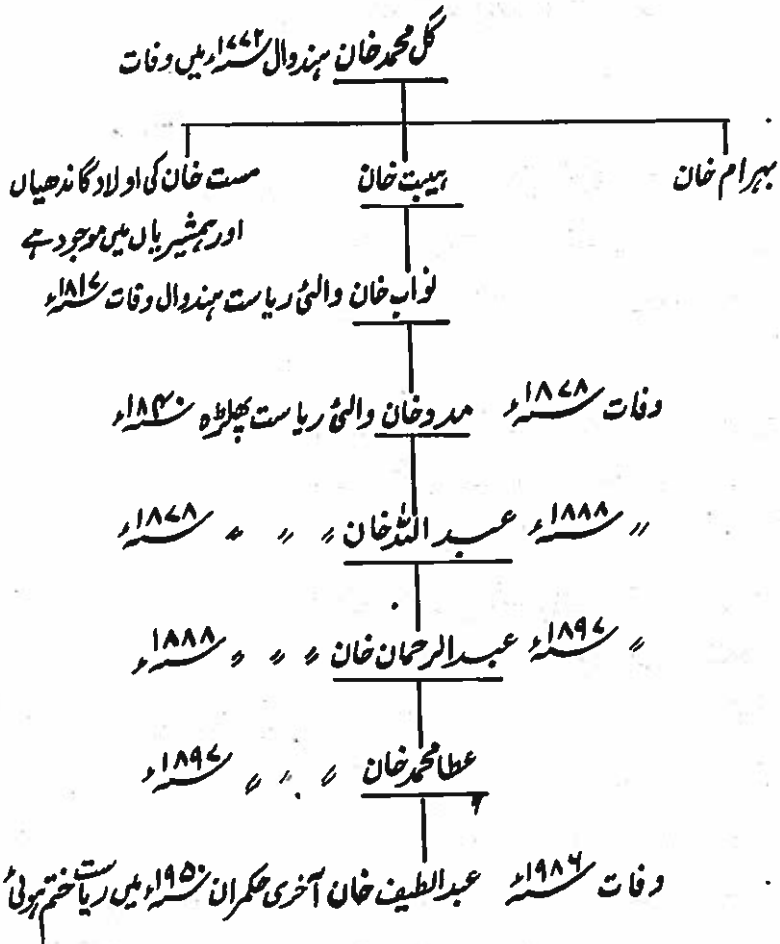 گل محمد خان ہندوال ۱۷۷۲ء میں وفات
بہرام خان
ہیبت خان
مست خان کی اولاد گاندھیاں
اور ہمشیریاں میں موجود ہے
نواب خان والئ ریاست ہندوال وفات ۱۸۱۷ء
وفات ۱۸۷۸ء مدد خان والئ ریاست پھلڑہ ۱۸۴۰ء
〃 ۱۸۸۸ء عبد اللہ خان 〃 〃 〃 ۱۸۷۸ء
〃 ۱۸۹۷ء عبدالرحمان خان 〃 〃 〃 ۱۸۸۸ء
عطا محمد خان 〃 〃 〃 ۱۸۹۷ء
وفات ۱۹۸۶ء عبدالطیف خان آخری حکمران ۱۹۵۰ء میں ریاست ختم ہوئی